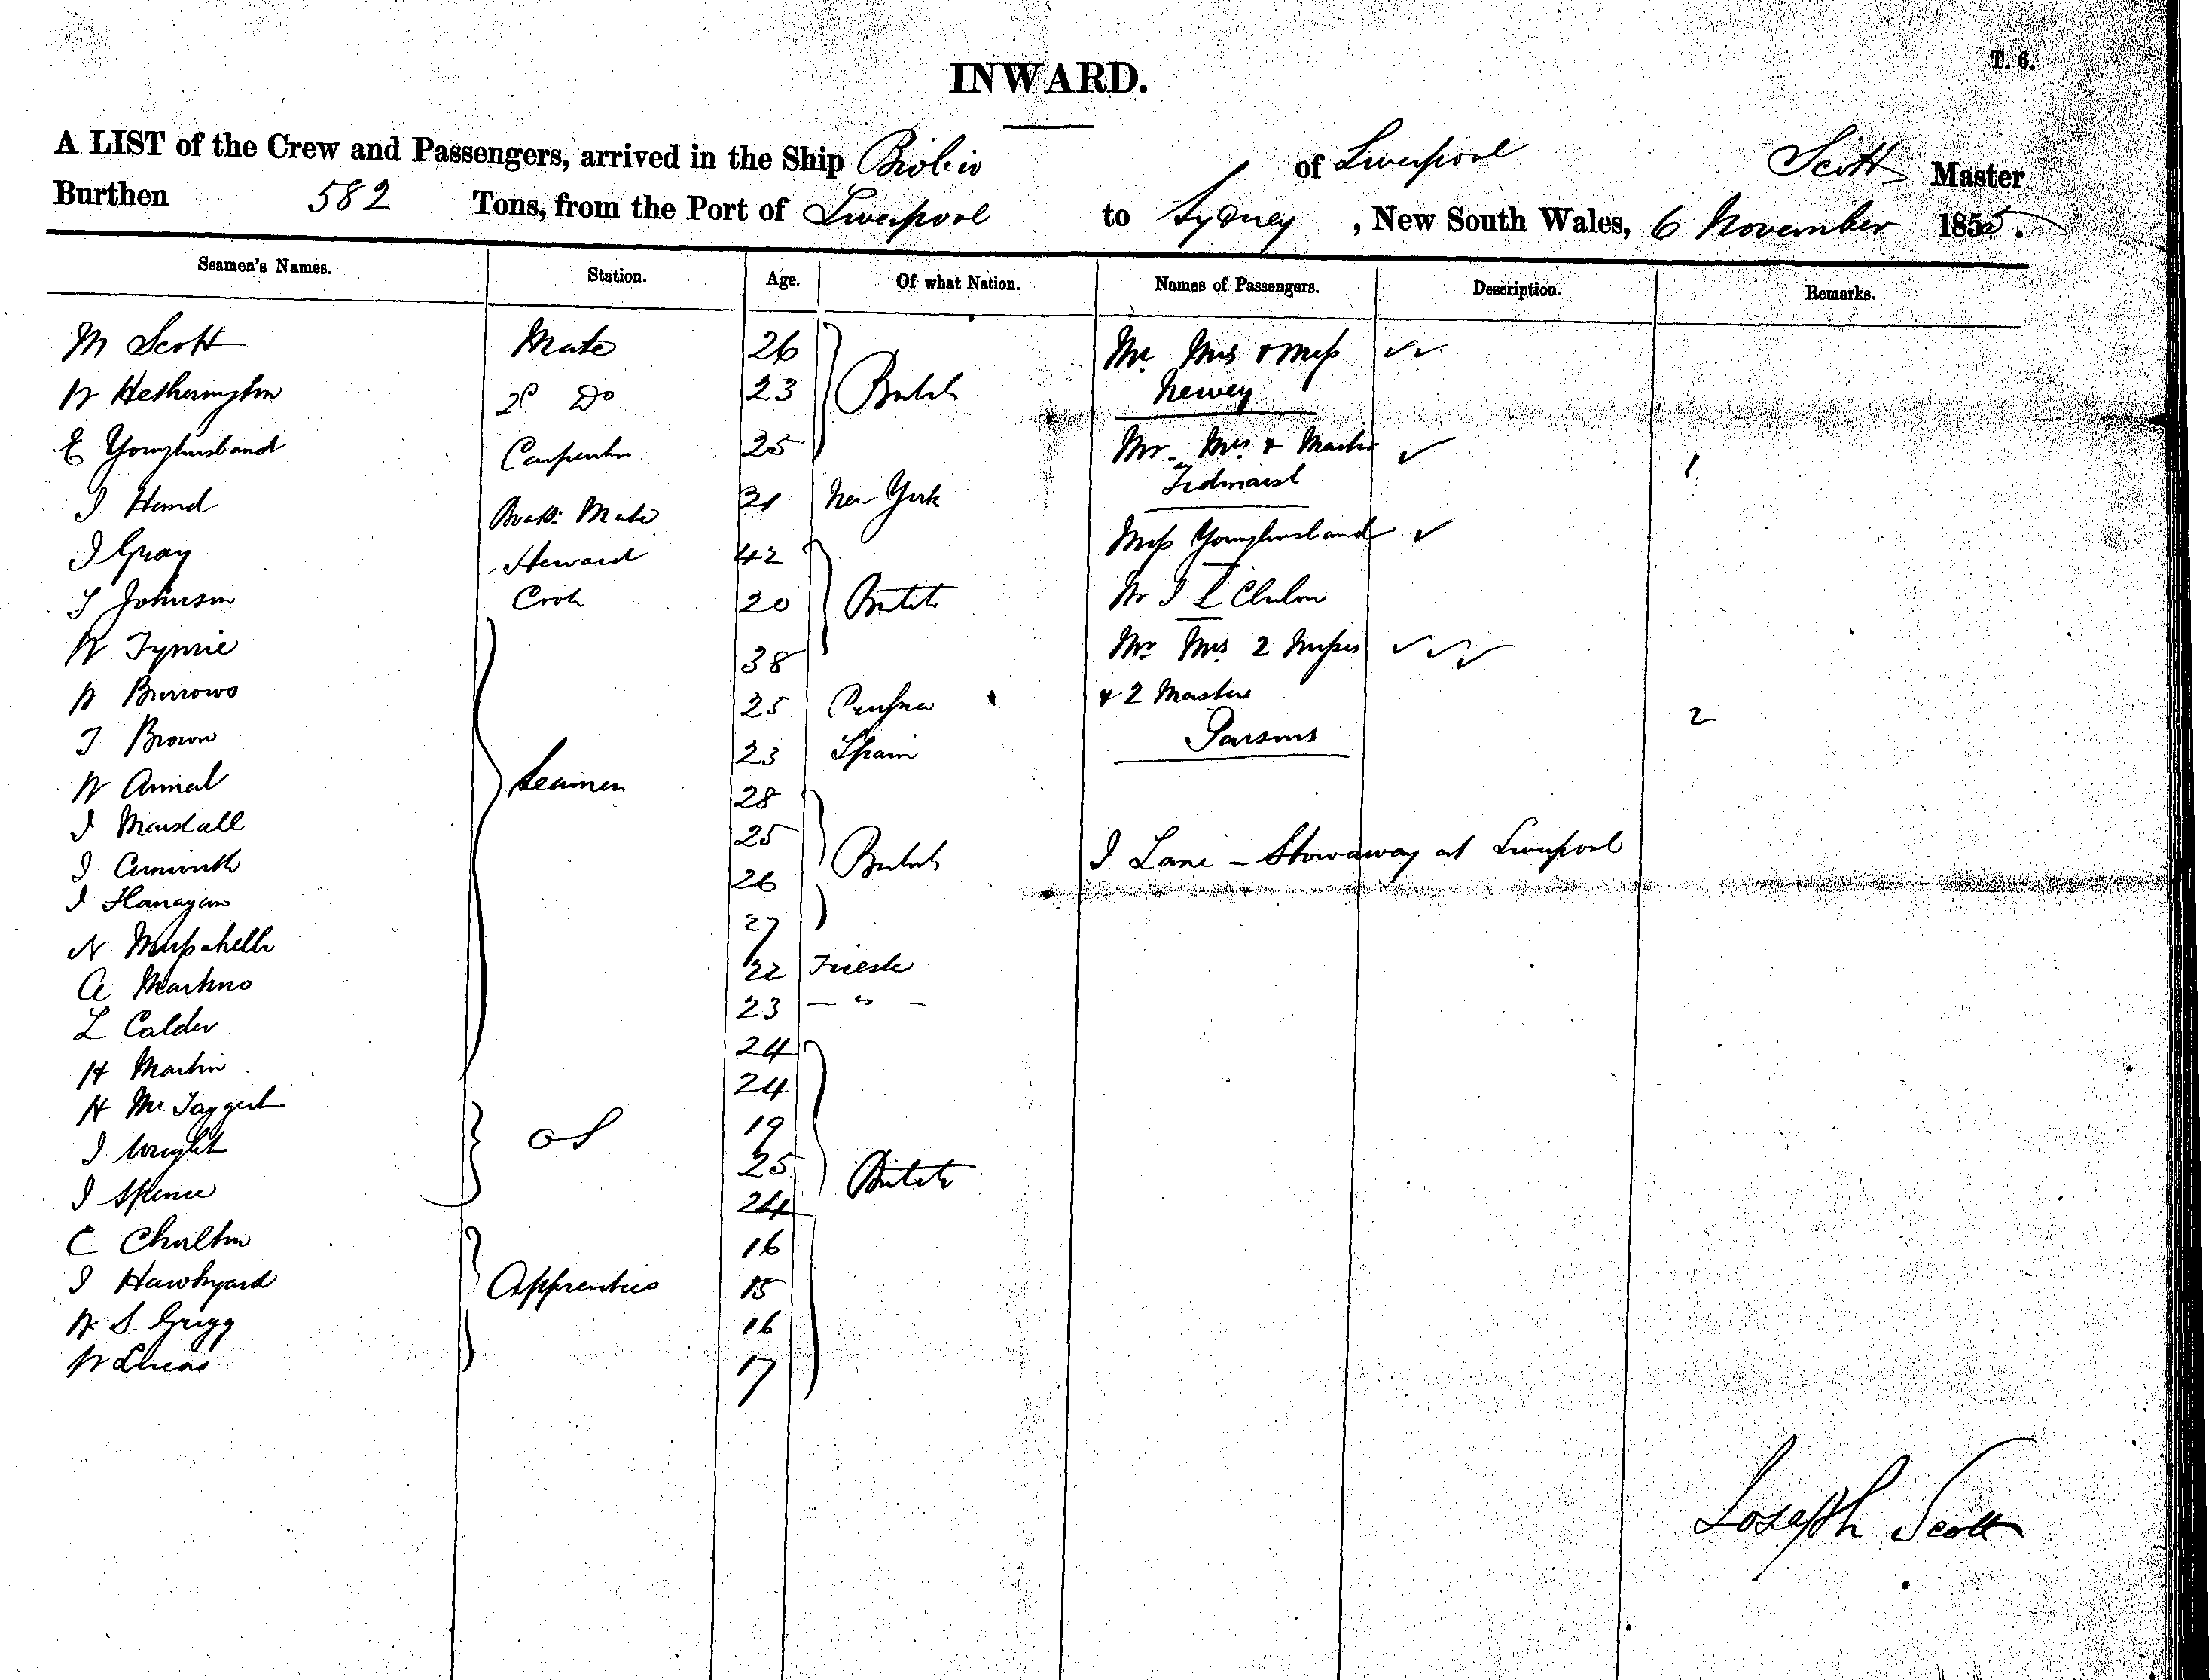 T. 6.
INWARD.
A LIST of the Crew and Passengers, arrived in the Ship Biobio of Liverpool Scott Master
Burthen 582 Tons, from the Port of Liverpool to Sydney, New South Wales, 6 November 1855.
Seamen's Names. Station. Age. Of what Nation. Names of Passengers. Description. Remarks.
M Scott Mate 26 Mr. Mrs & Miss
W Hetherington 2d Do 23 British Newey
E Younghusband Carpenter 25 Mr. Mrs. & Master
J Hand Mate 31 New York 1
J Gray Steward 42 Miss Younghusband
J Johnson Cook 20 British
W 38 Mr Mrs 2 Misses
W Burrows 25 Prussia & 2 Masters 2
J Brown 23 Spain Parsons
W Annal Seamen 28
J Marshall 25
J 26 British J Lane - Stowaway at Liverpool
J Flanagan 27
N 22 Trieste
A Martino 23 — " —
L Calder 24
H Martin 24
H McTaggert 19
J Wright OS 25 British
J Spence 24
C Charlton 16
J Hawkyard Apprentices 15
W S. Grigg 16
W Lucas 17
Joseph Scott